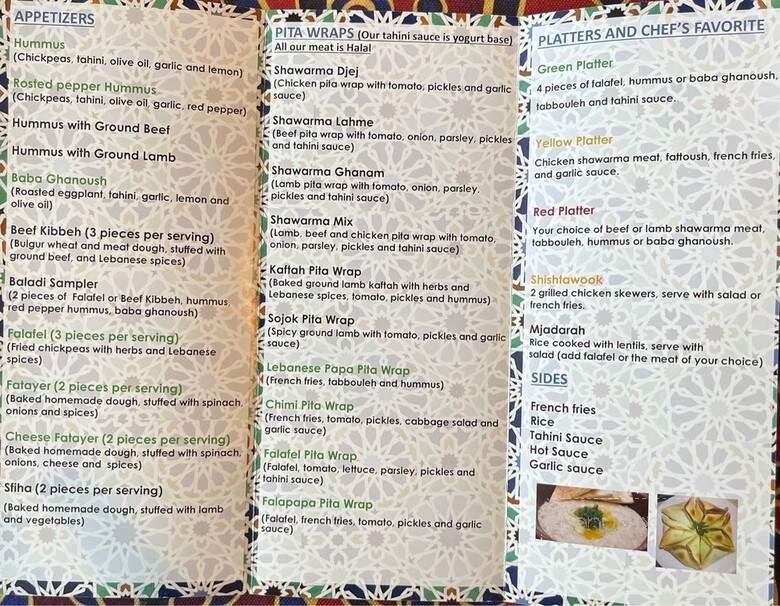 APPETIZERS
Hummus
(Chickpeas, tahini, olive oil, garlic and lemon)
Rosted pepper Hummus
(Chickpeas, tahini, olive oil, garlic, red pepper)
Hummus with Ground Beef
Hummus with Ground Lamb
Baba Ghanoush
(Roasted eggplant, tahini, garlic, lemon and
olive oil)
Beef Kibbeh (3 pieces per serving)
(Bulgur wheat and meat dough, stuffed with
ground beef, and Lebanese spices)
Baladi Sampler
(2 pieces of Falafel or Beef Kibbeh, hummus
red pepper hummus, baba ghanoush)
Falafel (3 pieces per serving)
(Fried chickpeas with herbs and Lebanese
spices)
Fatayer (2 pieces per serving)
(Baked homemade dough, stuffed with spinach,
onions and spices)
Cheese Fatayer (2 pieces per serving)
(Baked homemade dough, stuffed with spinach,
onions, cheese and spices)
Sfiha (2 pieces per serving)
(Baked homemade dough, stuffed with lamb
and vegetables)
PITA WRAPS (Our tahini sauce is yogurt base)
All our meat is Halal
Shawarma Djej
(Chicken pita wrap with tomato, pickles and garlic
sauce)
Shawarma Lahme
(Beef pita wrap with tomato, onion, parsley, pickles
and tahini sauce)
Shawarma Ghanam
(Lamb pita wrap with tomato, onion, parsley,
pickles and tahini sauce)
Shawarma Mix
(Lamb, beef and chicken pita wrap with tomato,
onion, parsley, pickles and tahini sauce)
Kaftah Pita Wrap
(Baked ground lamb kaftah with herbs and
Lebanese spices, tomato, pickles and hummus)
Sojok Pita Wrap
(Spicy ground lamb with tomato, pickles and garlic
sauce)
Lebanese Papa Pita Wrap
(French fries, tabbouleh and hummus)
Chimi Pita Wrap
(French fries, tomato, pickles, cabbage salad and
garlic sauce)
Falafel Pita Wrap
(Falafel, tomato, lettuce, parsley, pickles and
tahini sauce)
Falapapa Pita Wrap
(Falafel, french fries, tomato, pickles and garlic
sauce)
PLATTERS AND CHEF'S FAVORITE
Green Platter
4 pieces of falafel, hummus or baba ghanoush,
tabbouleh and tahini sauce.
Yellow Platter
Chicken shawarma meat, fattoush, french fries,
and garlic sauce.
Red Platter
Your choice of beef or lamb shawarma meat,
tabbouleh, hummus or baba ghanoush.
Shishtawook
2 grilled chicken skewers, serve with salad or
french fries.
Mjadarah
Rice cooked with lentils, serve with
salad (add falafel or the meat of your choice)
SIDES
French fries
Rice
Tahini Sauce
Hot Sauce
Garlic sauce